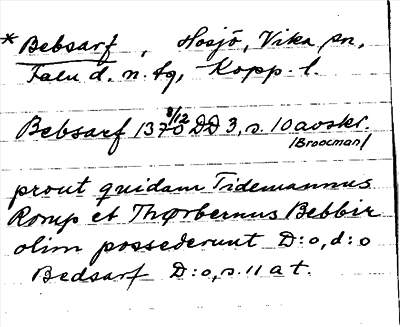 * Bebsarf, Hosjö, Vika sn,
Falu d. n. tg, Kopp. l.
Bebsarf 1370 8/12 DD 3, s. 10 avskr.
/Broocman/
prout quidam Tidemannus
Romp et Thørbernus Bebbir
olim possederunt D:o, d:o
Bedsarf D:o, s. 11 a t.